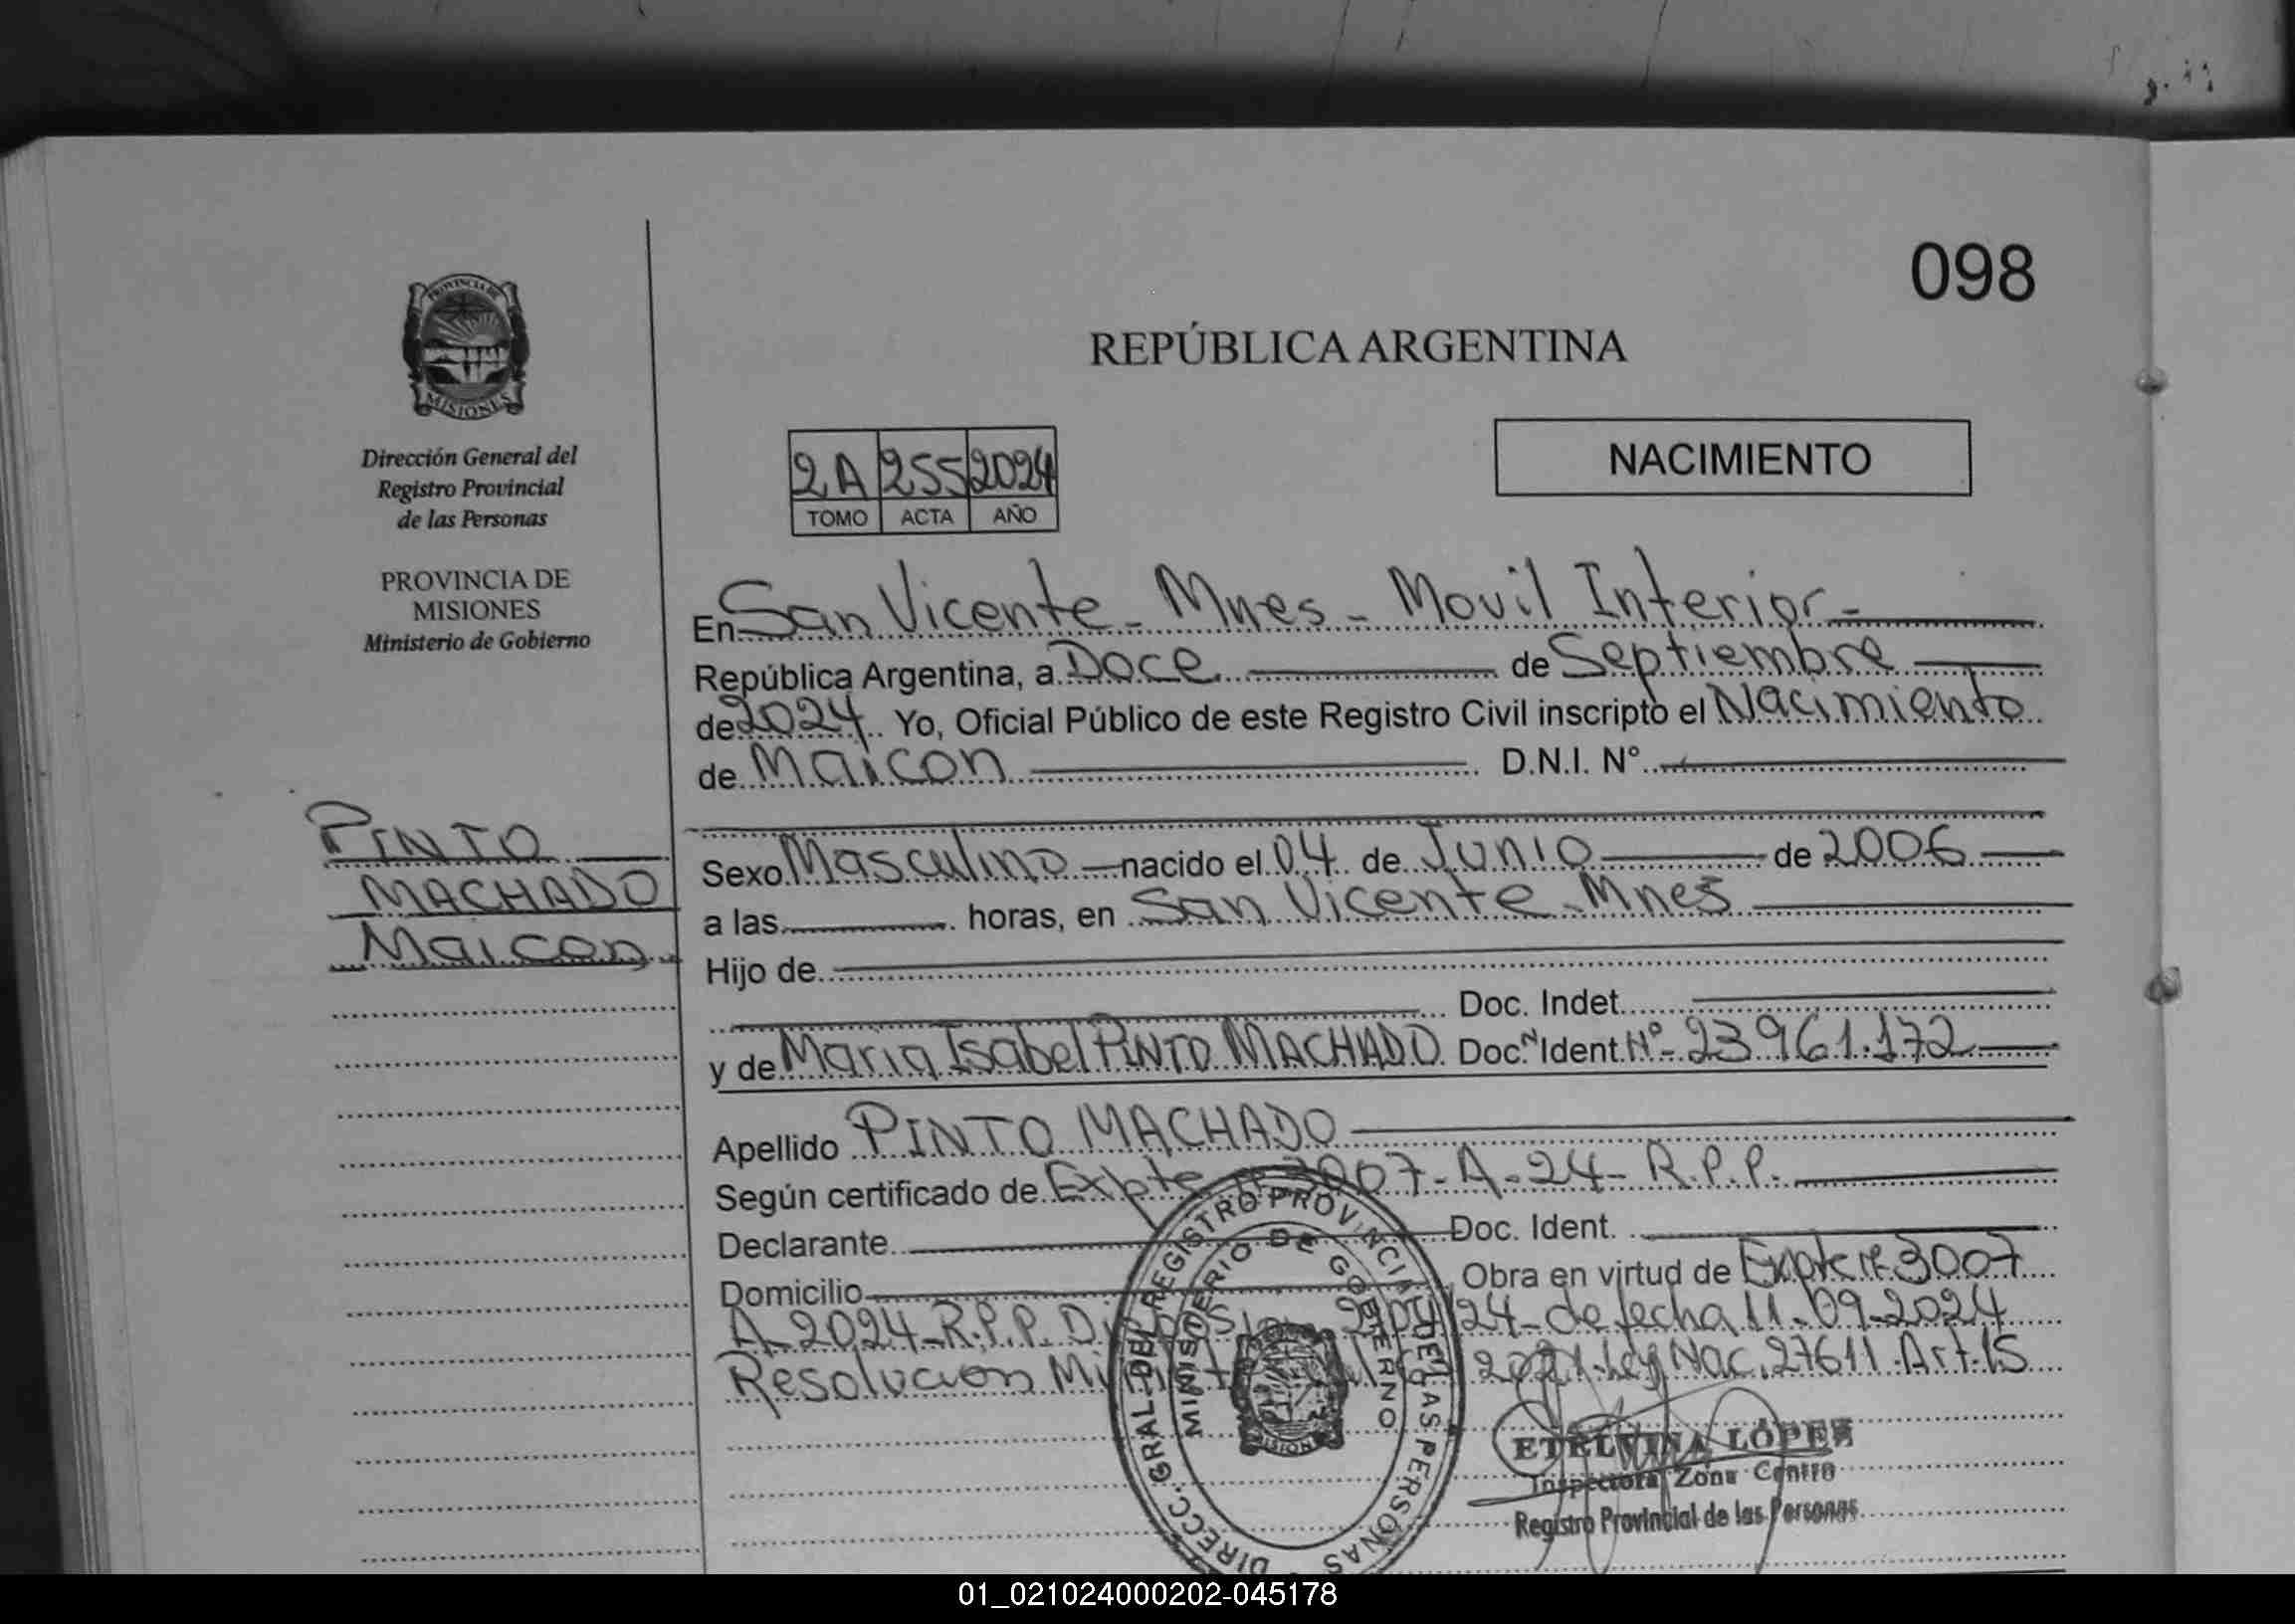 098
REPÚBLICA ARGENTINA
PROVINCIA DE
MISIONES
Dirección General del
Registro Provincial
de las Personas
PROVINCIA DE
MISIONES
Ministerio de Gobierno
2A 255 2024
TOMO ACTA AÑO
NACIMIENTO
En San Vicente - Mnes - Movil Interior -
República Argentina, a Doce de Septiembre
de 2024 Yo, Oficial Público de este Registro Civil inscripto el Nacimiento
de Maicon D.N.I. N°
PINTO
MACHADO
Maicon
Sexo Masculino nacido el 04 de Junio de 2006
a las horas, en San Vicente - Mnes
Hijo de
Doc. Indet.
y de Maria Isabel PINTO MACHADO Doc. Ident. N° 23961.172
Apellido PINTO MACHADO
Según certificado de Expte n° 3007-A-24- R.P.P.
Declarante Doc. Ident.
Domicilio Obra en virtud de Expte n° 3007
A-2024-R.P.P. /24- de fecha 11-09-2024
Resolucion 2021-Ley Nac. 27611-Art-15
DIRECC. GRAL. DEL REGISTRO PROVINCIAL DE LAS PERSONAS
MINISTERIO DE GOBIERNO
MISIONES
ETELVINA LÓPEZ
Inspectora Zona Centro
Registro Provincial de las Personas
01_021024000202-045178